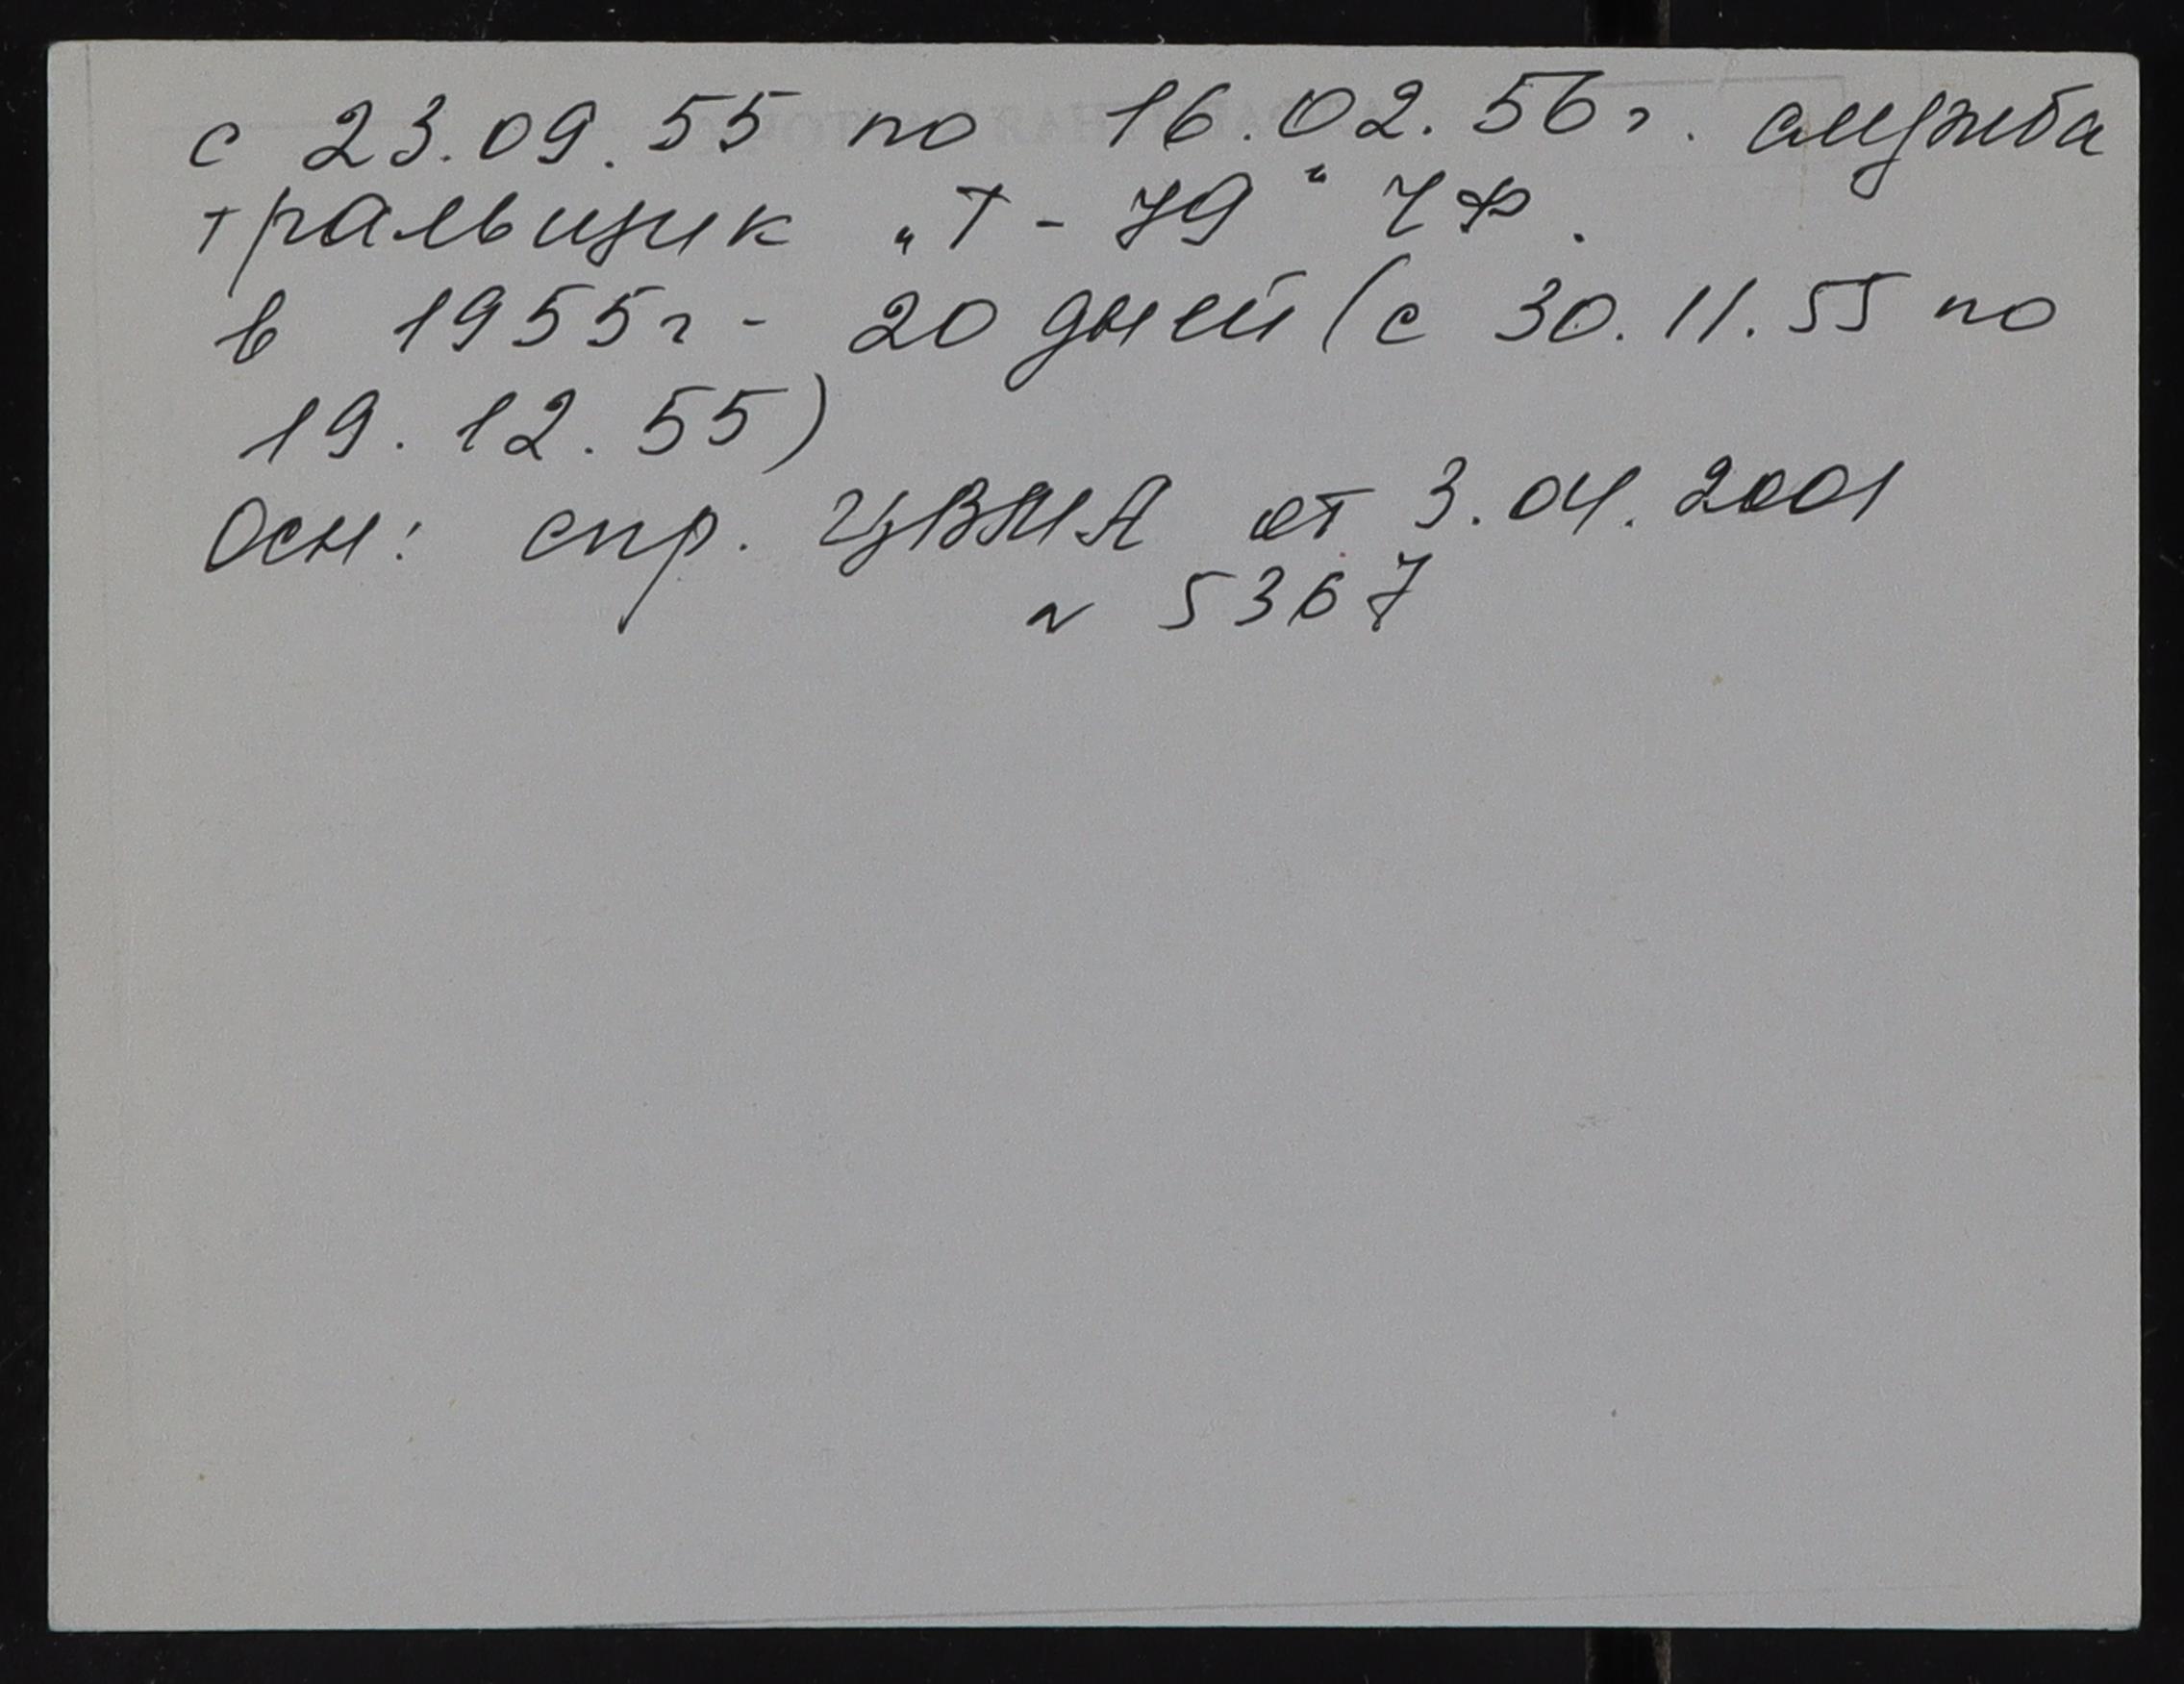 с 23.09.55 по 16.02.56г. служба
тральщик „Т-79" ЧФ.
в 1955г - 20 дней (с 30.11.55 по
19.12.55)
Осн: спр. ЦВМА от 3.04.2001
№ 5367